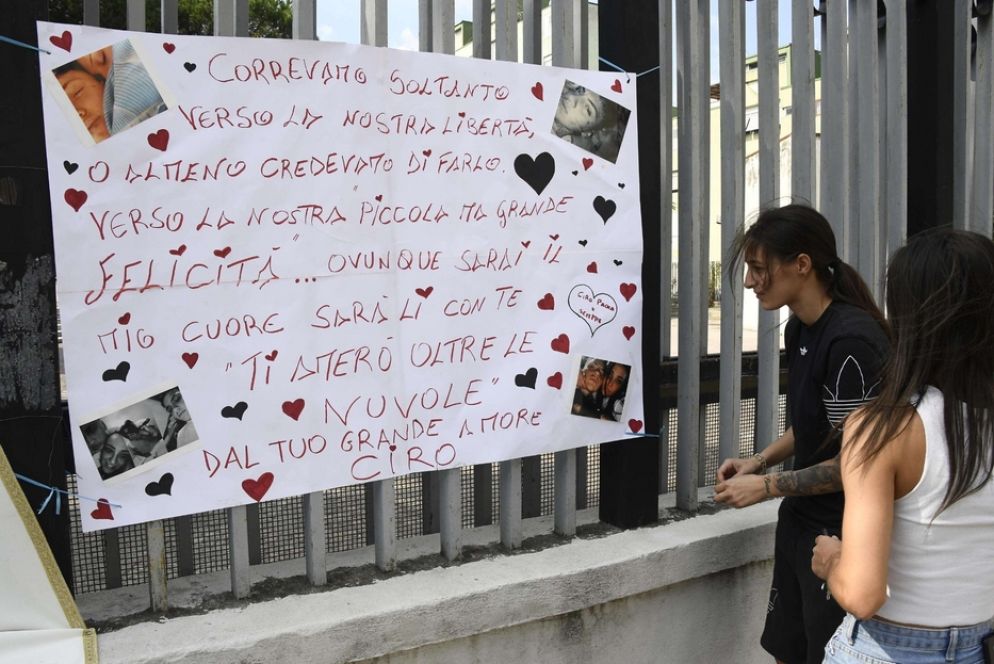 CORREVAMO SOLTANTO
VERSO LA NOSTRA LIBERTÀ,
O ALMENO CREDEVAMO DI FARLO.
VERSO LA "NOSTRA PICCOLA MA GRANDE
FELICITÀ"... OVUNQUE SARAI IL
MIO CUORE SARÀ LÌ CON TE
"TI AMERÒ OLTRE LE
NUVOLE"
DAL TUO GRANDE AMORE
CIRO
CIRO PAOLA
X
SEMPRE